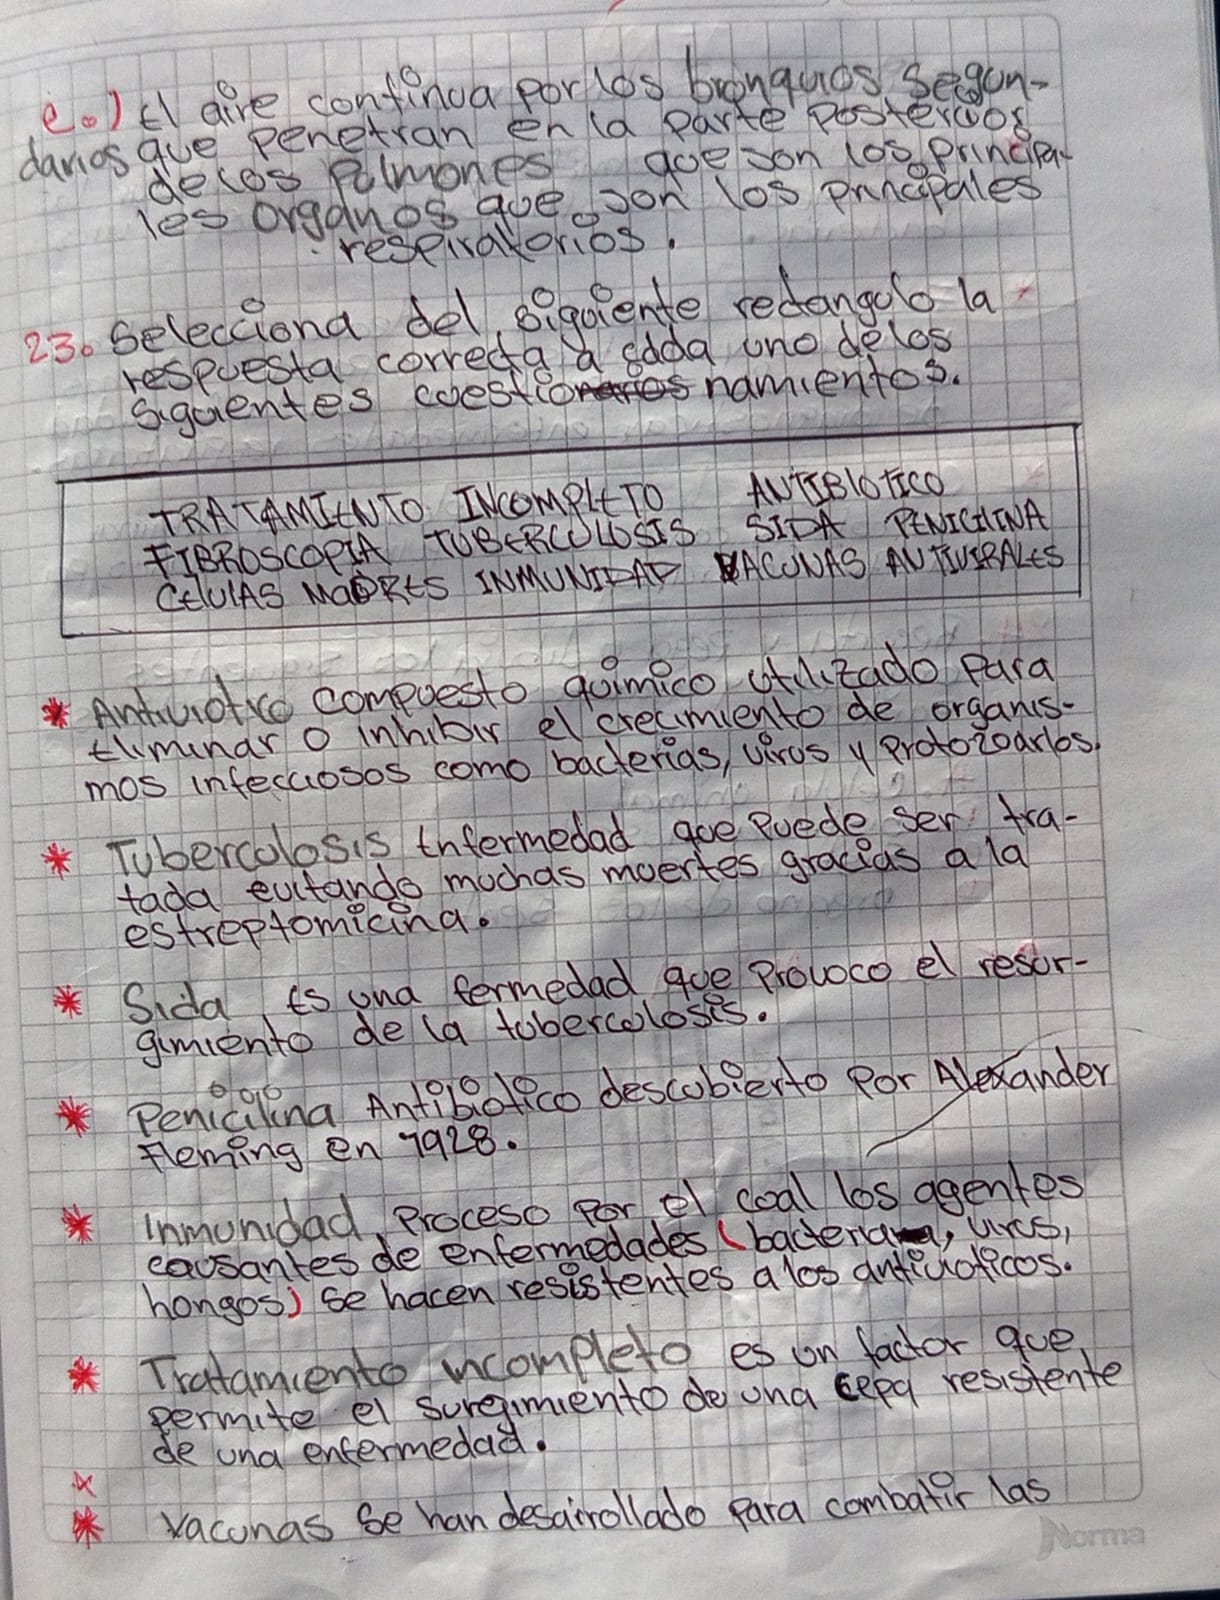 e.) El aire continua por los bronquios segun-
darios que penetran en la parte posterios
de los pulmones que son los principa-
les organos que son los principales
respiratorios.
23. Selecciona del siguiente redangulo la
respuesta correcta a cada uno de los
siguientes cuestionamientos.
TRATAMIENTO INCOMPLETO ANTIBIOTICO
FIBROSCOPIA TUBERCULOSIS SIDA PENICILINA
CELULAS MADRES INMUNIDAD VACUNAS ANTIVIRALES
* Antiviotico compuesto quimico utilizado para
Eliminar o inhibir el crecimiento de organis-
mos infecciosos como bacterias, virus y protozoarios.
* Tuberculosis Enfermedad que puede ser tra-
tada evitando muchas muertes gracias a la
estreptomicina.
* Sida Es una fermedad que provoco el resur-
gimiento de la tuberculosis.
* Penicilina Antibiotico descubierto por Alexander
Fleming en 1928.
* Inmunidad Proceso por el cual los agentes
causantes de enfermedades (bacteria, virus,
hongos) se hacen resistentes a los antivioticos.
* Tratamiento incompleto es un factor que
permite el suregimiento de una cepa resistente
de una enfermedad.
*
* Vacunas se han desarrollado para combatir las
Norma